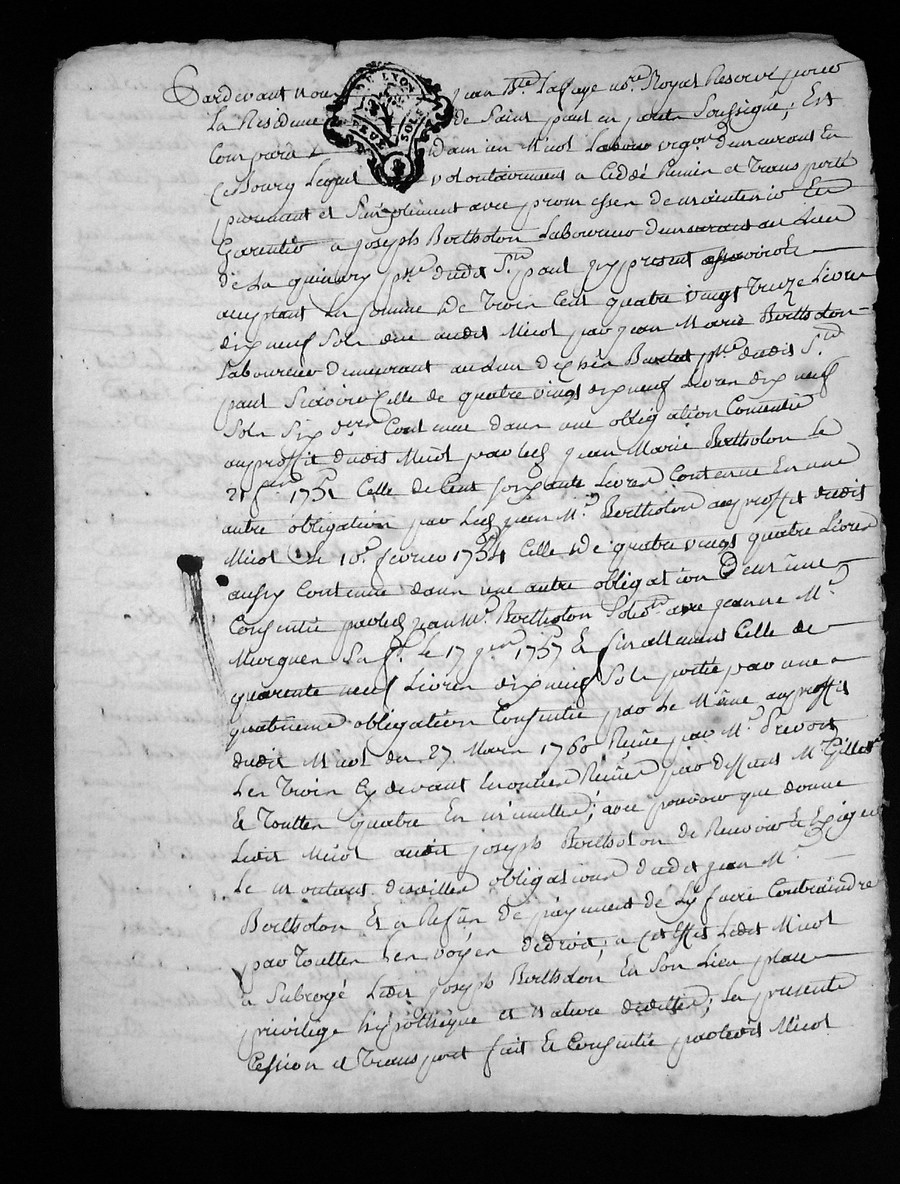 Pardevant nous jean Bte Lafaye nore Royal Reservé pour
La Residence de Saint paul en soussigné; Est
Comparu Micol Laboureur vigon demeurant En
Ce Bourg Lequel volontairement a Ceddé Remis et Transporté
purement et Simplement avec promesses de maintenir En
Garentie a joseph Bertholon Laboureur demeurant au Lieu
de La psse dudit St paul jcy present
acceptant La somme de Trois Cent quatre vingt Treize Livres
dix neuf Sols due audit Micol par jean Marie Bertholon
Laboureur demeurant au psse dudit St
paul Scavoir Celle de quatre vingt dix neuf Livres dix neuf
Sols Six Contenue dans une obligation Consentie
au proffit dudit Micol par led jean Marie Bertholon Le
Celle de Cent soixante Livres Contenue En une
autre obligation par Led jean M. Bertholon au proffit dudit
Micol Le 10e fevrier 1754 Celle de quatre vingt quatre Livres
aussy Contenue dans une autre obligation
Consentie par led jean M. Bertholon avec jeanne M.
Le 17 1757 & finallement Celle de
quarente neuf Livres dix neuf Sols portée par une
quatrieme obligation Consentie par Le Même au proffit
dudit Micol du 27 Mars 1760 Reçüe par Me Prevost
Les Trois Cy devant Reçües par deffunt Me
Et Touttes quatre En minuttes; avec pouvoir que donne
Ledit Micol audit joseph Bertholon de Recevoir Et Exiger
Le montant desdittes obligations dudit jean M.
Bertholon Et a Refus de payement de Ly faire Contraindre
par Touttes Les voyes de droit; a Cet Effet Ledit Micol
a Subrogé Ledit joseph Bertholon En Son Lieu place
privilege hypothèque et Nature dedittes; La presente
Cession et Transport fait Et Consentie par ledit Micol
DE LYON
DEUX SOLS